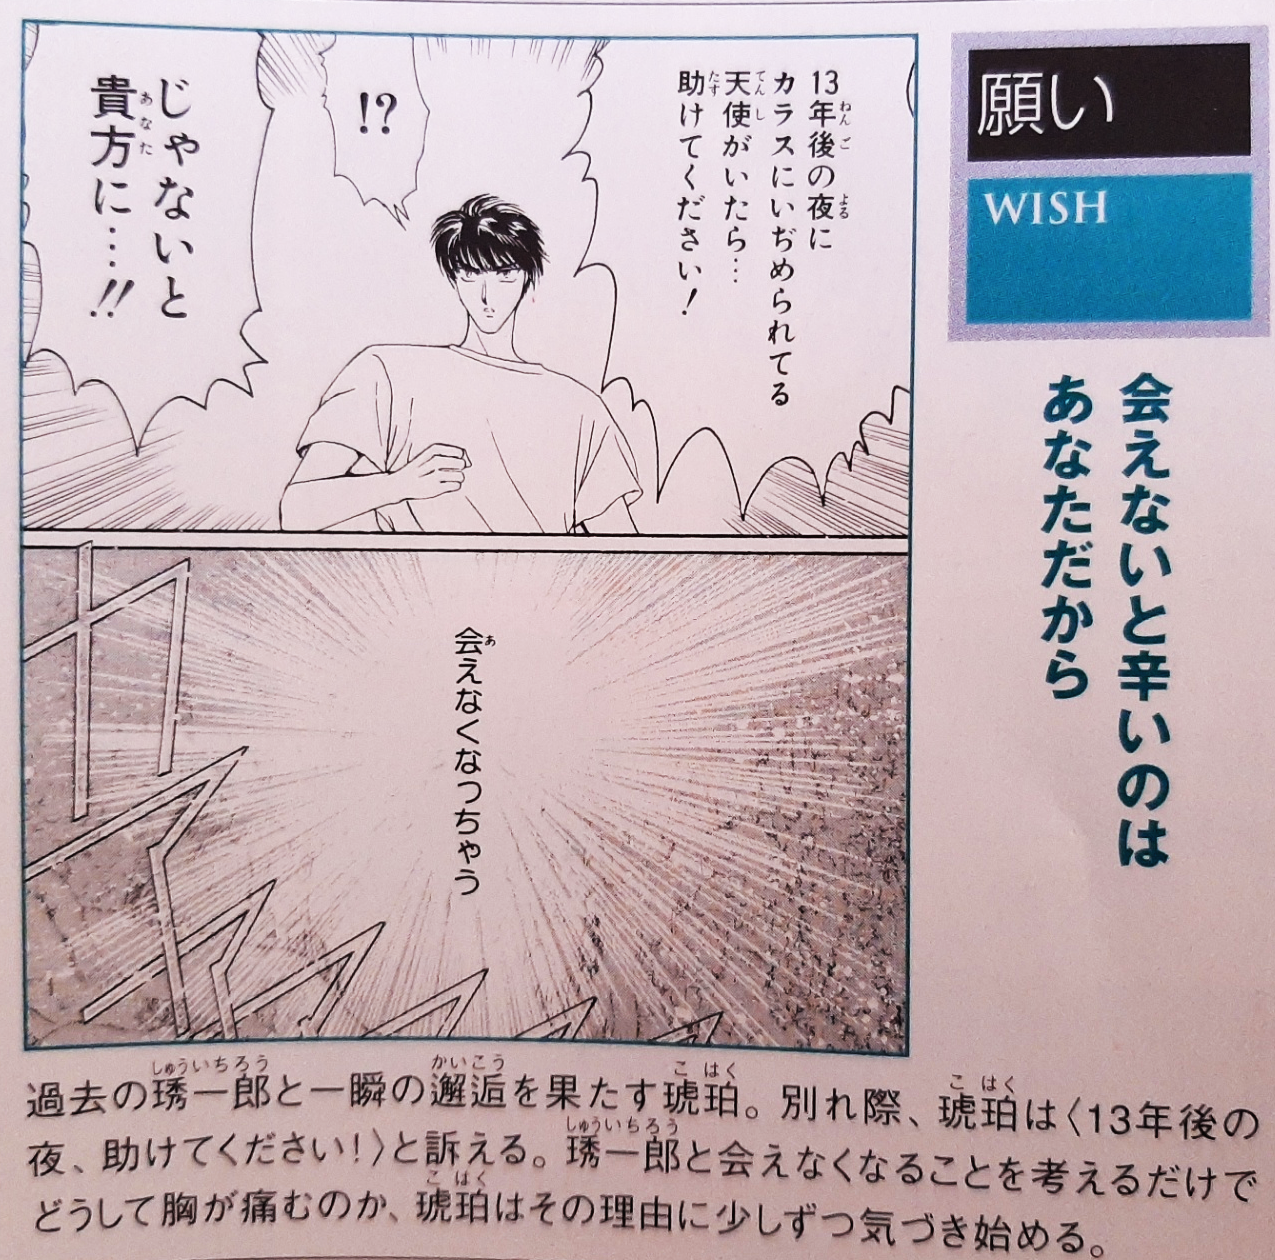 願い
WISH
会えないと辛いのは
あなただから
13年後の夜に
カラスにいぢめられてる
天使がいたら…
助けてください!
!?
じゃないと
貴方に…!!
会えなくなっちゃう
過去の琇一郎と一瞬の邂逅を果たす琥珀。別れ際、琥珀は〈13年後の
夜、助けてください!〉と訴える。琇一郎と会えなくなることを考えるだけで
どうして胸が痛むのか、琥珀はその理由に少しずつ気づき始める。